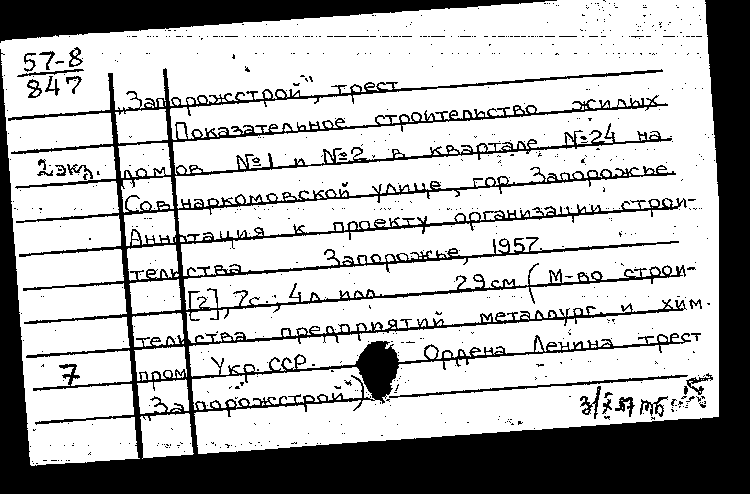 57-8
847
„Запорожстрой", трест
Показательное строительство жилых
2 экз.
домов №1 и №2 в квартале №24 на
Совнаркомовской улице, гор. Запорожье.
Аннотация к проекту организации строи-
тельства. Запорожье, 1957.
[2], 7с.; 4 л. илл. 29 см (М-во строи-
тельства предприятий металлург. и хим.
7
пром. Укр. ССР. Ордена Ленина трест
„Запорожстрой")
3/X 57